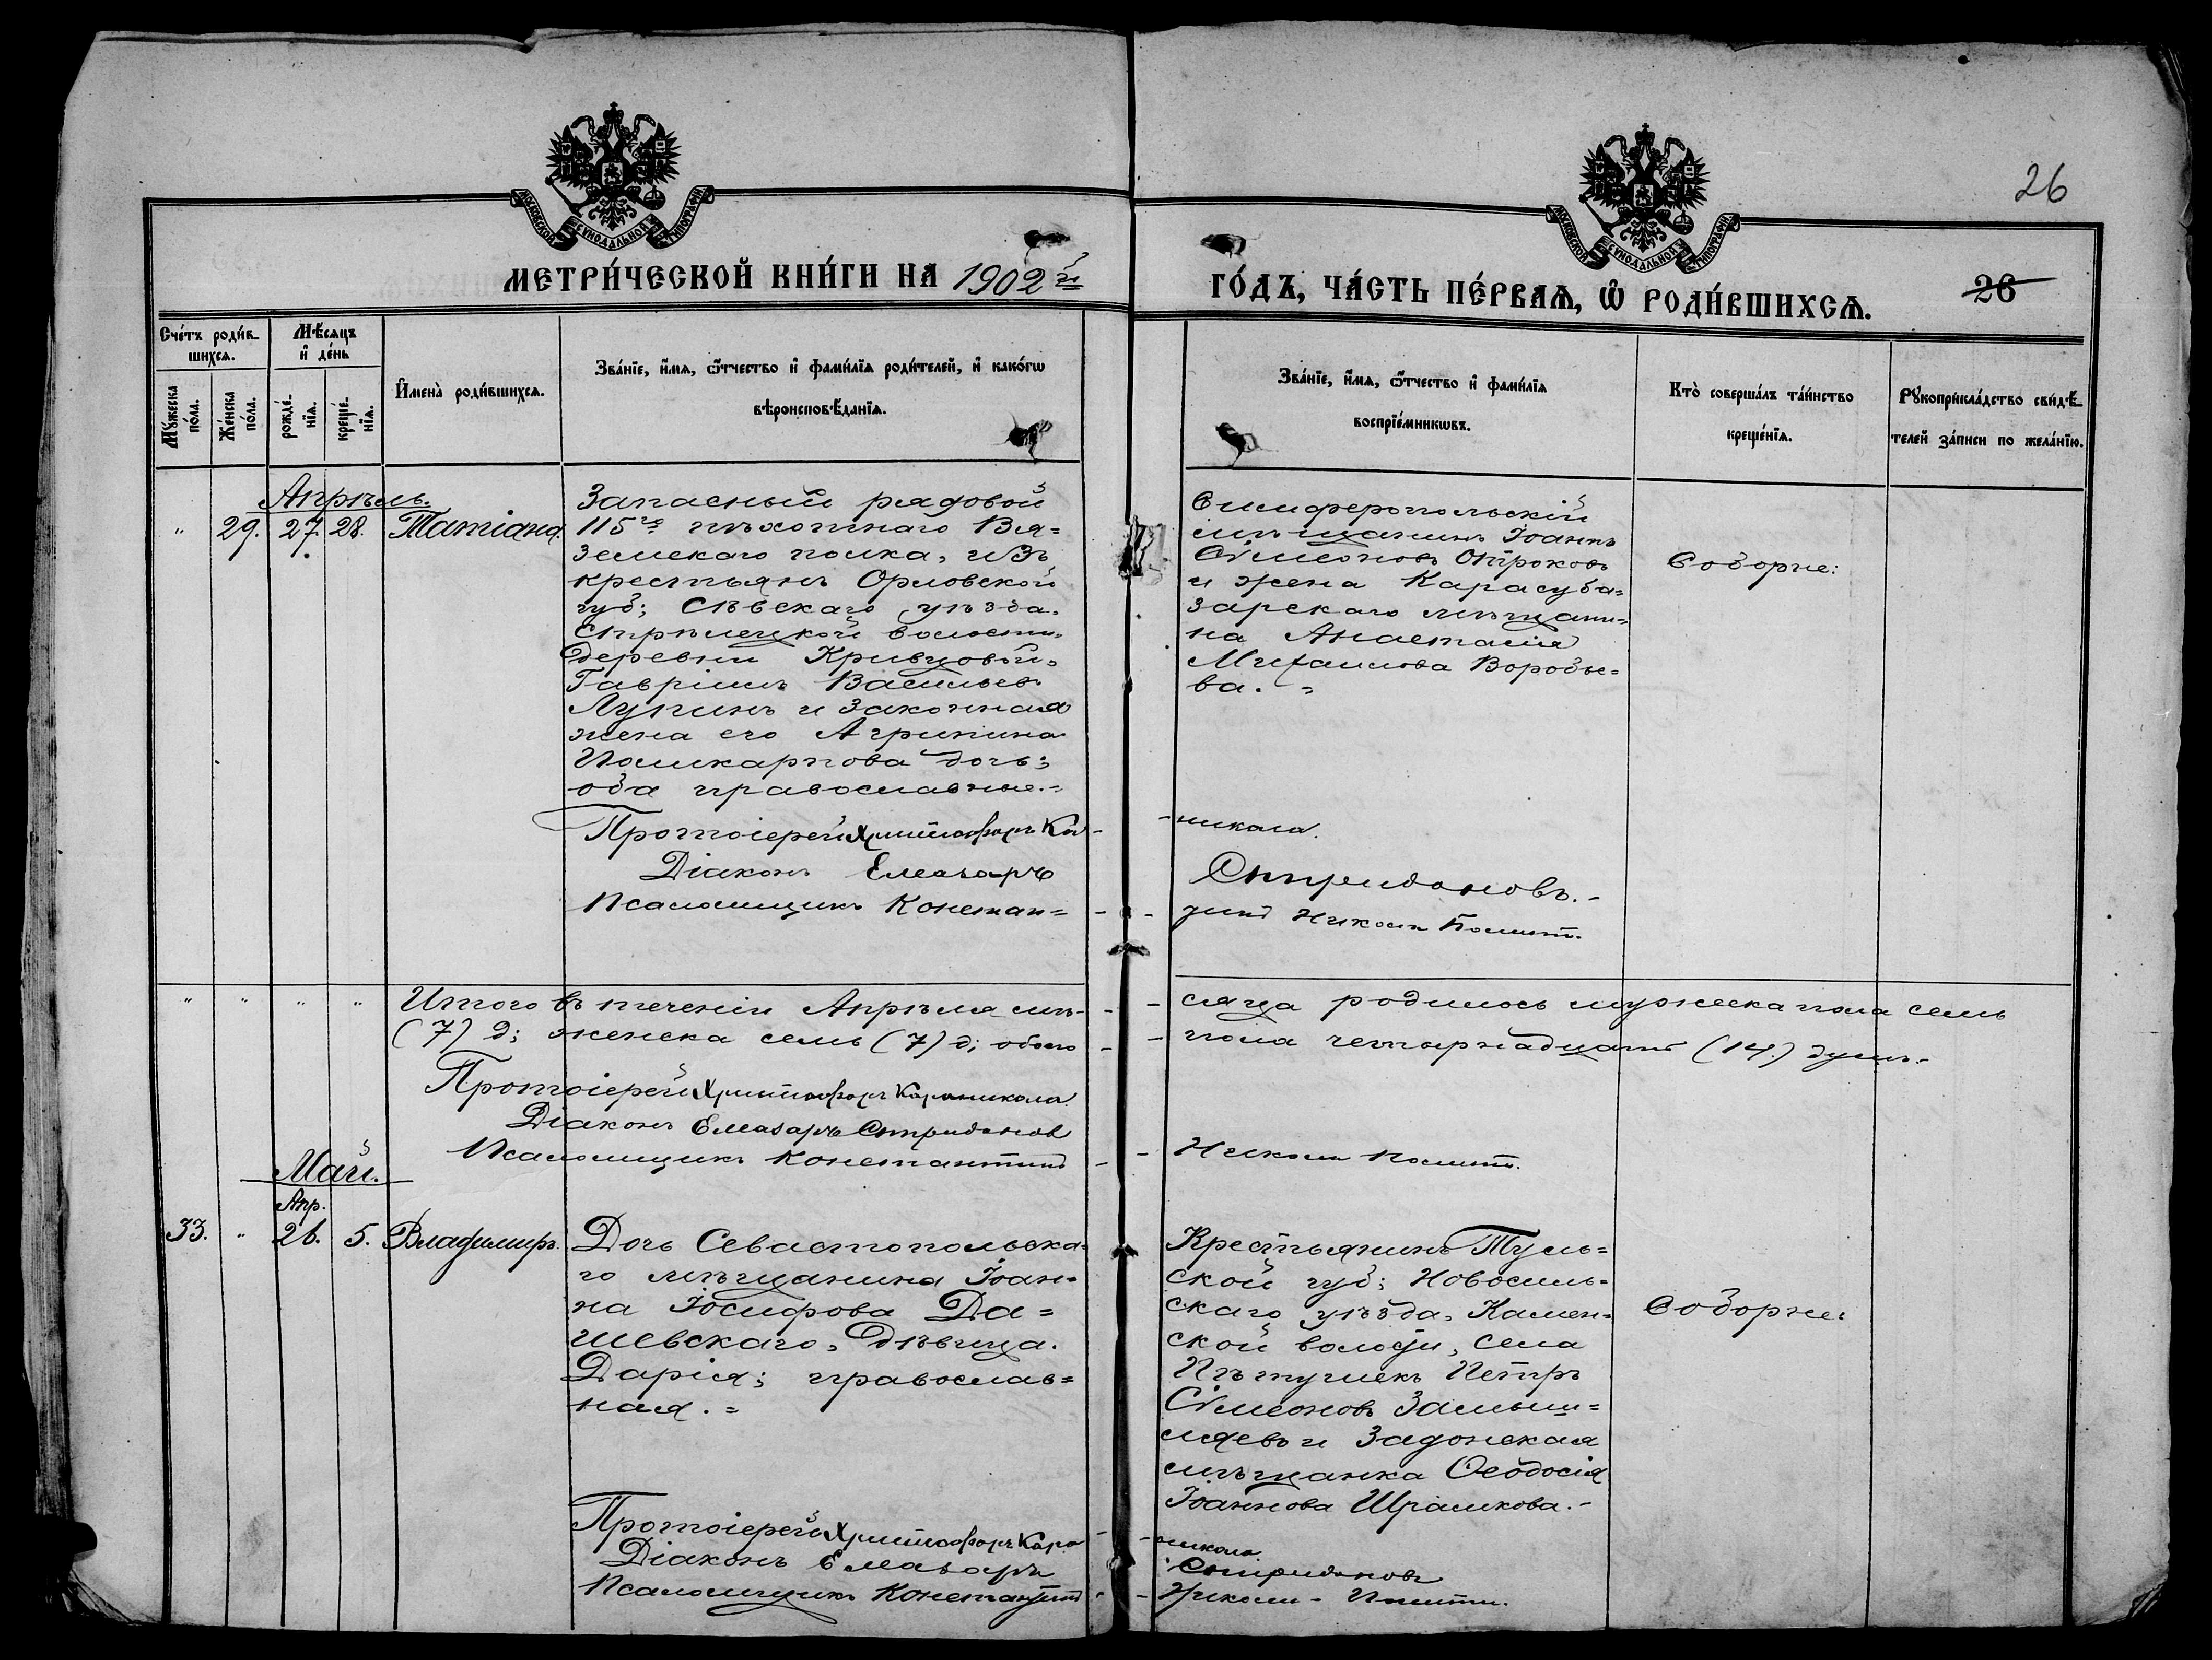 26
МОСКОВСКОЙ СѴНОДАЛЬНОЙ ТИПОГРАФІИ
МОСКОВСКОЙ СѴНОДАЛЬНОЙ ТИПОГРАФІИ
МЕТРИ́ЧЕСКОЙ КНИ́ГИ НА 1902й
ГО́ДЪ, ЧА́СТЬ ПЕ́РВАѦ, Ѽ РОДИ́ВШИХСѦ.
26
Сче́тъ роди́в-
шихсѧ.
Мꙋ́жеска по́ла.
Же́нска по́ла.
Мѣ́сѧцъ
и҆ де́нь
рожде́-
нїѧ.
креще́-
нїѧ.
И҆мена̀ роди́вшихсѧ.
Зва́нїе, и҆́мѧ, ѻ҆́тчество и҆ фами́лїѧ роди́телей, и҆ како́гѡ
вѣроисповѣ́данїѧ.
Зва́нїе, и҆́мѧ, ѻ҆́тчество и҆ фами́лїѧ
воспрїе́мникѡвъ.
Кто̀ соверша́лъ та́инство
креще́нїѧ.
Рꙋкоприкла́дство свидѣ́-
телей за́писи по жела́нїю.
Апрѣль.
" 29. 27. 28. Татіана.
Запасный рядовой
115го пѣхотнаго Вя=
земскаго полка, изъ
крестьянъ Орловской
губ; Сѣвскаго уѣзда.
Стрѣлецкой волости,
деревни Кривцовой=
Гавріилъ Васильевъ
Лупинъ и законная
жена его Агрипина
Поликарпова дочь;
оба православные.=
Симферопольскій
мѣщанинъ Іоаннъ
Сѵмеоновъ Отроковъ
и жена Карасуба=
зарскаго мѣщани=
на Анастасія
Михаилова Воробье=
ва. =
Соборне:
Протоіерей Христофоръ Ка-
-никола.
Діаконъ Елеазаръ
Спиридоновъ.-
Псаломщикъ Констан= - -
тинъ Николи
" " " " Итого въ теченіи Апрѣля мѣ- -
- сяца родилось мужеска пола семь
(7) д; женска семь (7) д; обоего -
- пола четырнадцать (14.) душъ.-
Протоіерей Христофоръ Караникола.
Діаконъ Елеазаръ Спиридоновъ
Псаломщикъ Константинъ -
- Николи
Май.
Апр.
33. " 26. 5. Владимиръ.
Дочь Севастопольска=
го мѣщанина Іоан=
на Іосифова Да=
шевскаго, дѣвица.
Дарія; православ=
ная. =
Крестьянинъ Туль=
ской губ; Новосиль=
скаго уѣзда, Камен=
ской волости, села
Пѣтушекъ Петръ
Сѵмеоновъ Замыш=
ляевъ и Задонская
мѣщанка Ѳеодосія
Іоаннова Шрамкова.-
Соборне:
Протоіерей Христофоръ Кара -
- никола.
Діаконъ Елеазаръ
Спиридоновъ
Псаломщикъ Константинъ -
- Николи -